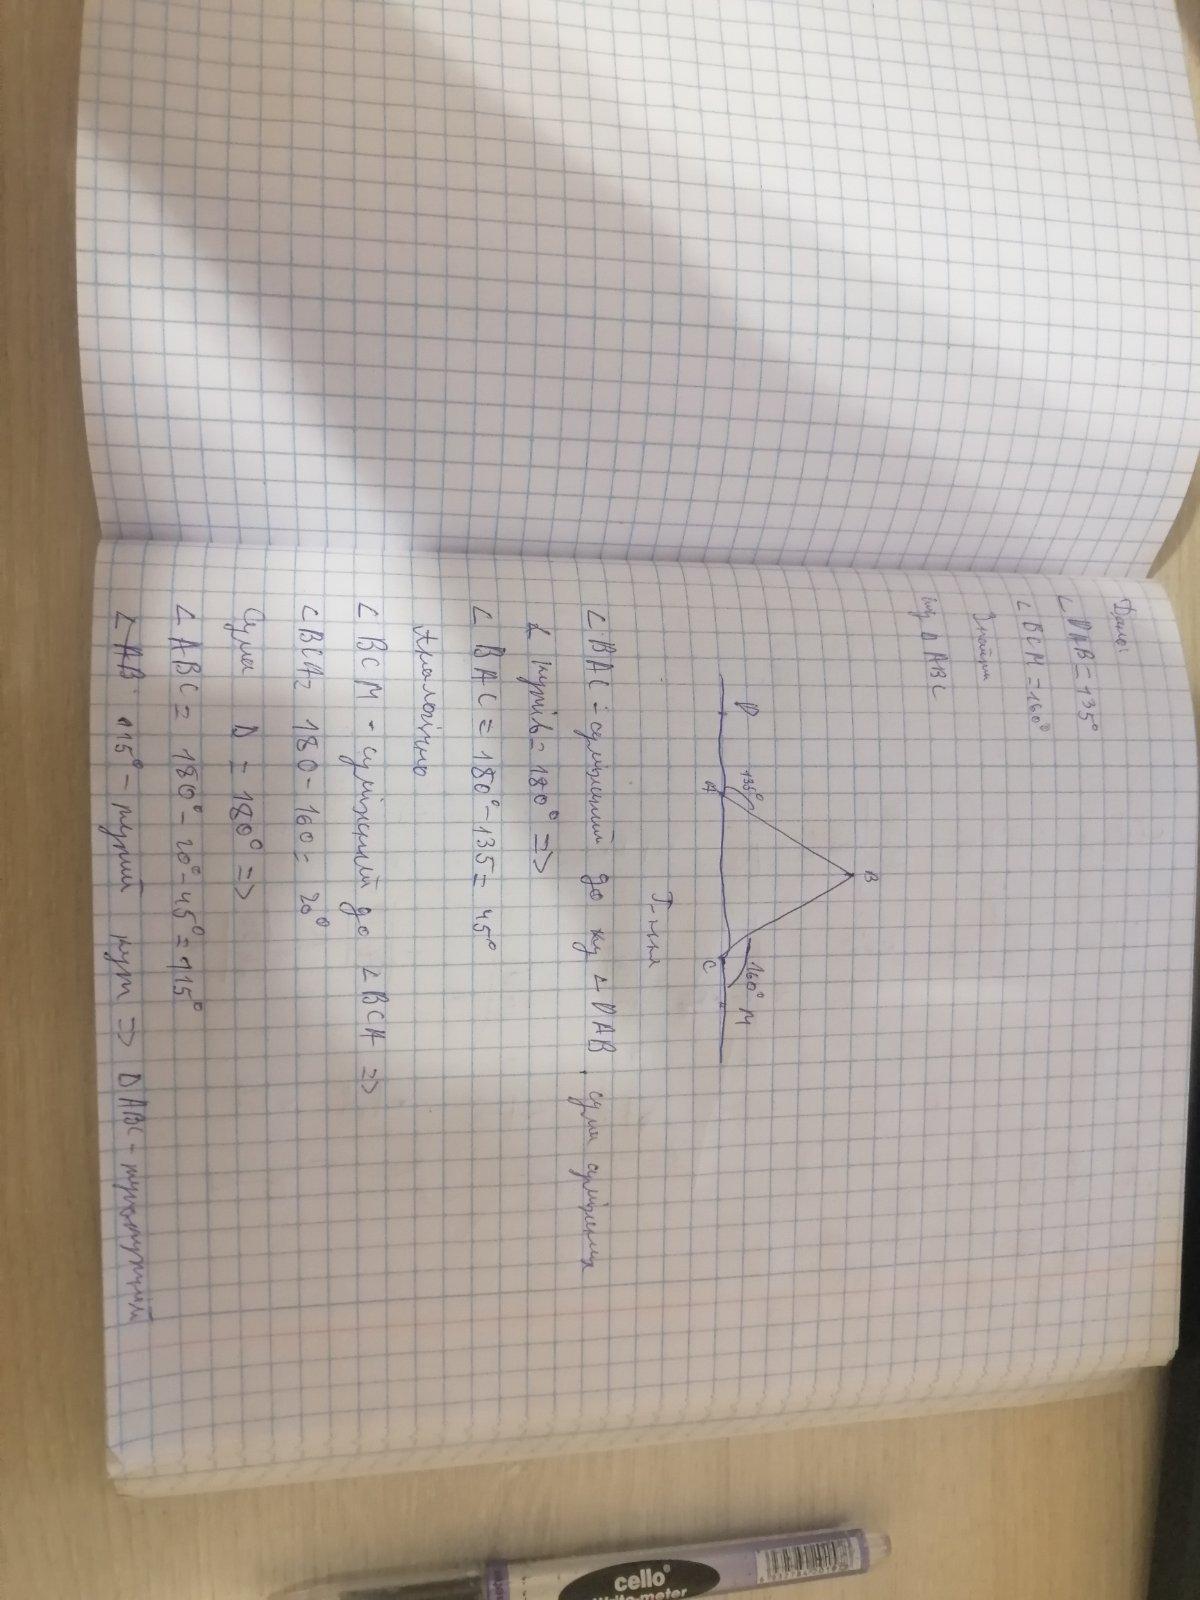 Дано:
∠DAB = 135°
∠BCM = 160°
Знайти
вид ΔABC
B
D
135°
A
160°
M
C
Р-ння
∠BAC - суміжний до ку ∠DAB, сума суміжних
∠ кутів = 180° =>
∠ BAC = 180° - 135 = 45°
Аналогічно
∠ BCM - суміжний до ∠BCA =>
∠BCA = 180 - 160 = 20°
Сума Δ = 180° =>
∠ABC = 180° - 20° - 45° = 115°
∠ AB 115° - тупий кут => ΔABC - тупокутний
cello